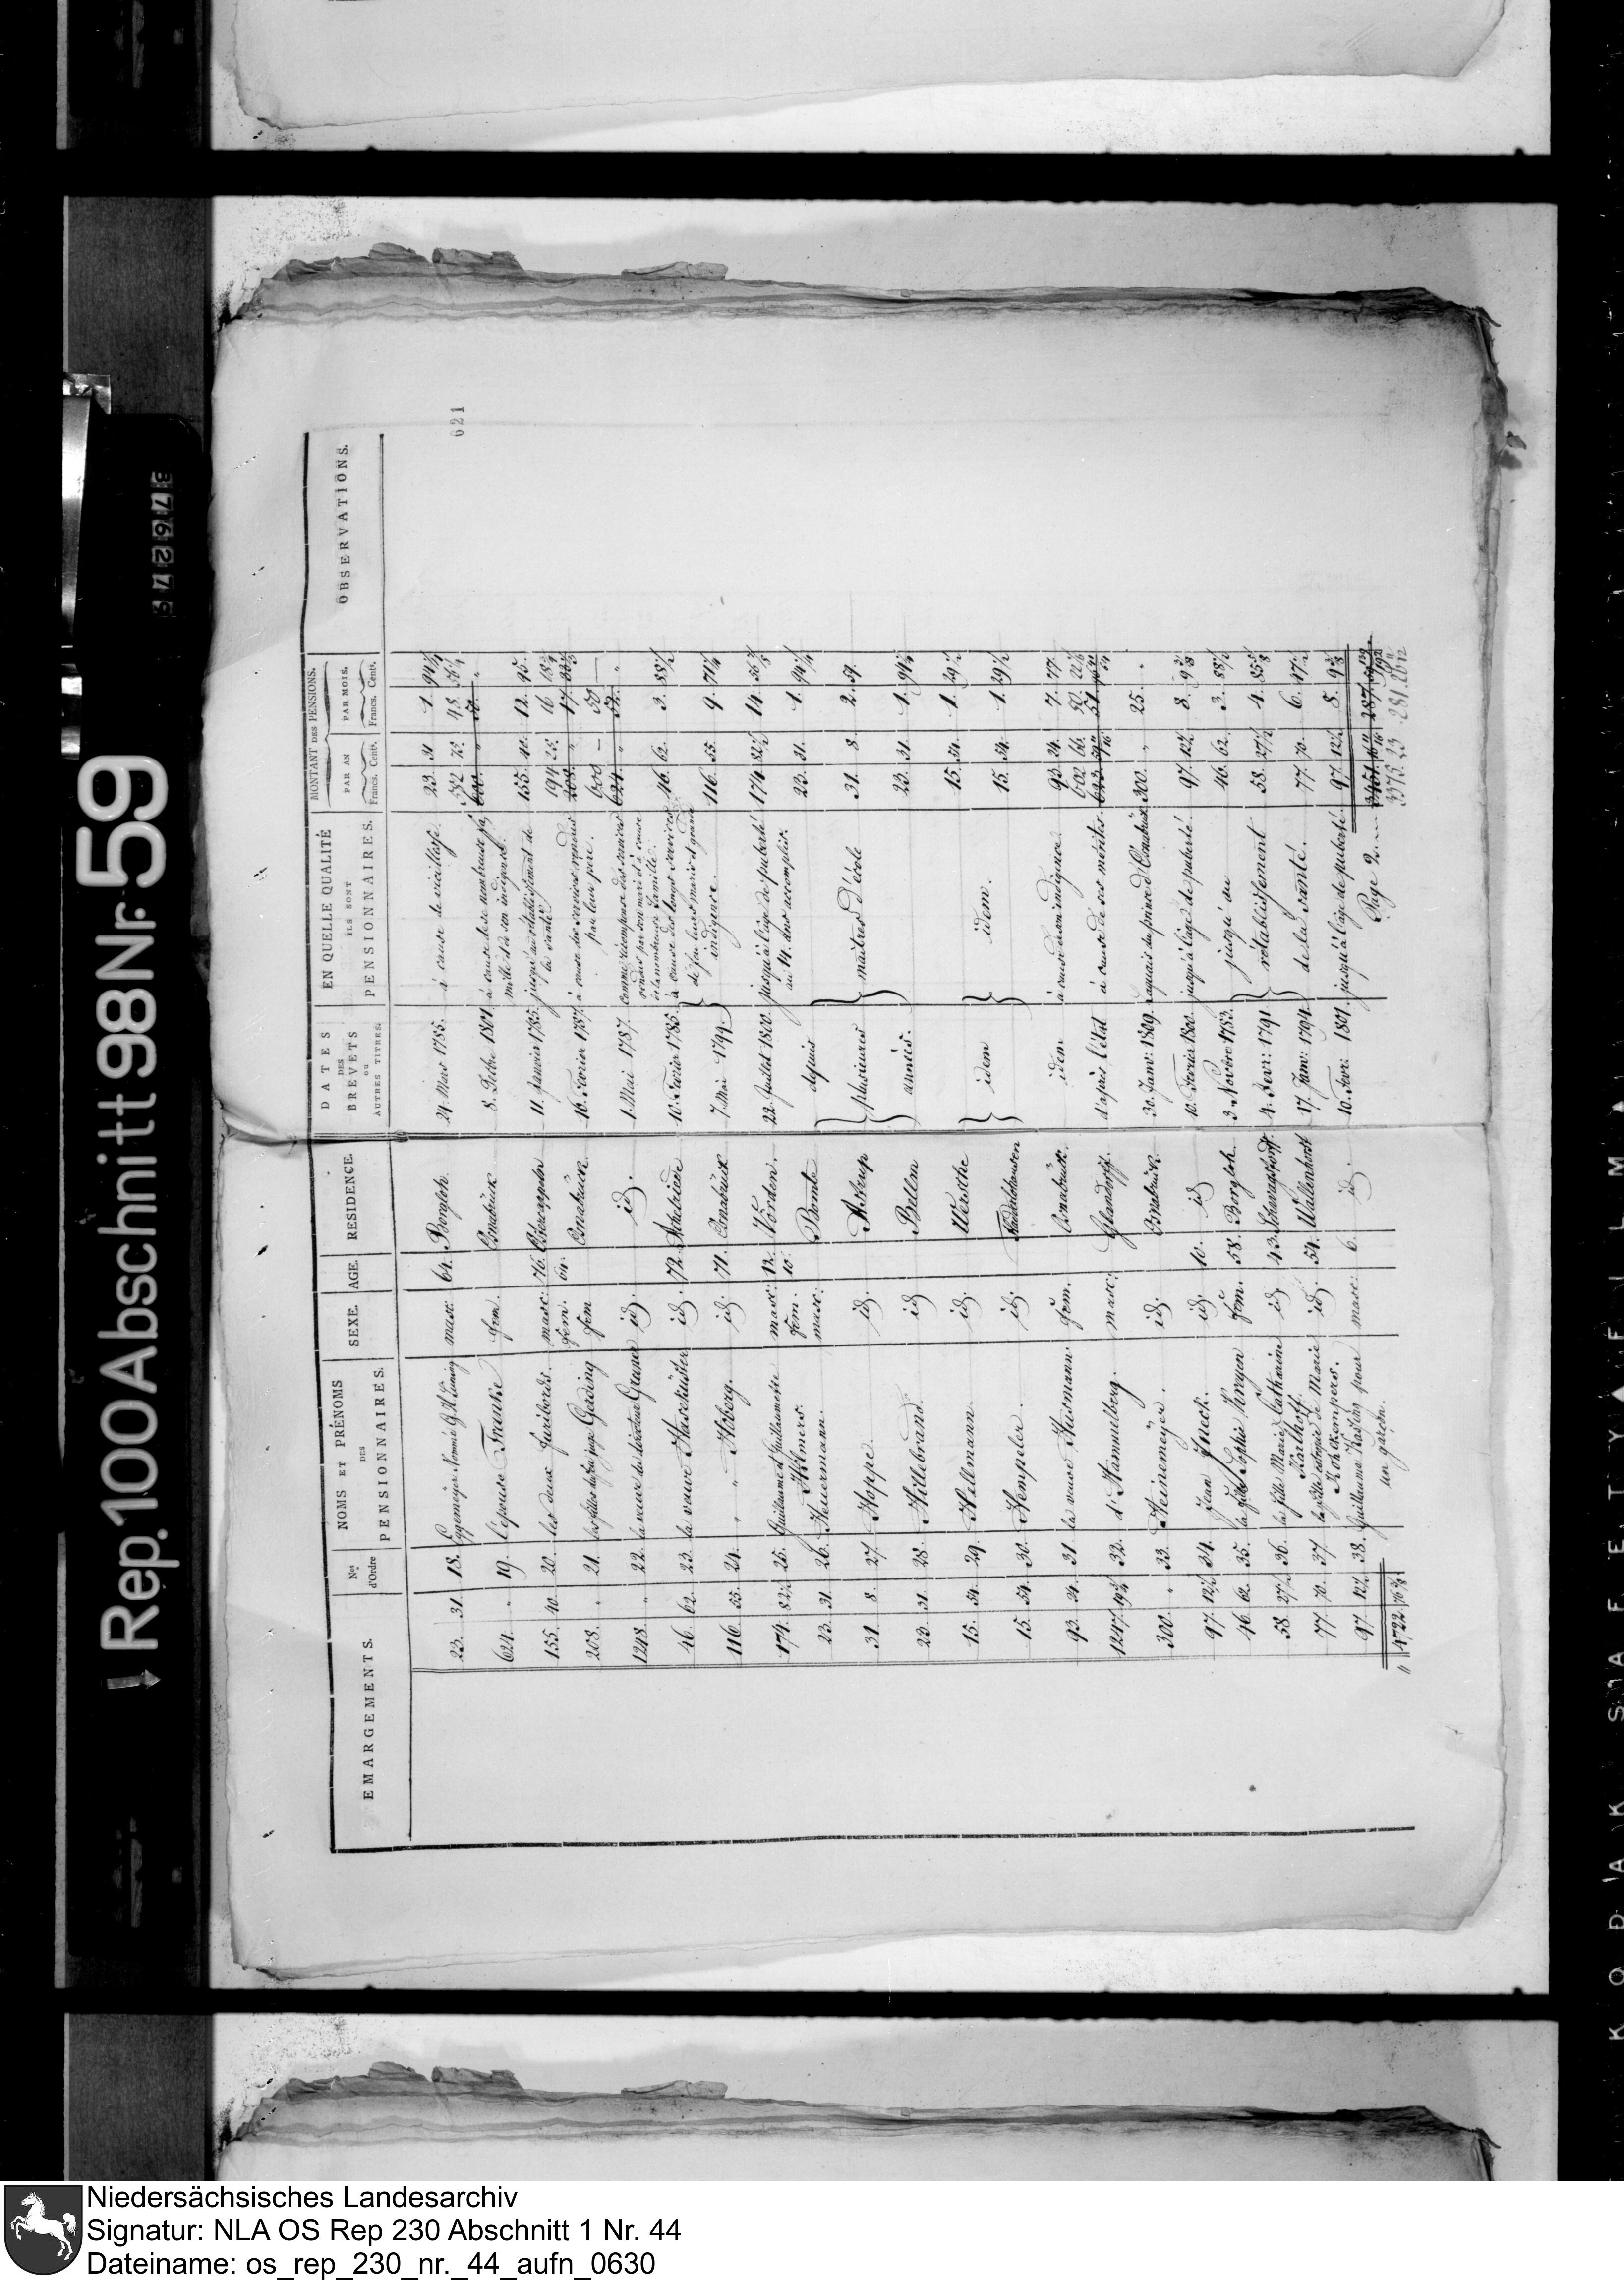 Rep.100 A Abschnitt 98 Nr. 59
621
EMARGEMENTS.
Nos d'Ordre
NOMS ET PRÉNOMS DES PENSIONNAIRES.
SEXE.
AGE.
RESIDENCE.
DATES DES BREVETS OU AUTRES TITRES.
EN QUELLE QUALITÉ ILS SONT PENSIONNAIRES.
MONTANT DES PENSIONS.
PAR AN
Francs. Cents.
PAR MOIS.
Francs. Cents.
OBSERVATIONS.
23. 31. 18. masc: 64. Borgloh. 24. Mars 1785. à cause de vieillesse. 23. 31 1. 94¼
624. " 19. l'epouse Franke fem. Osnabrück 8. 1801. à cause de se nombreuse fa, 582 72. 48. 56¼
mille et de son indigence. 600. " 50. "
155. 40. 20. les deux masc: 76. 11. Janvier 1785. jusqu'au rétablissement de 155. 40. 12. 95.
fem. 64. la santé 194 25. 16 18¾
208. " 21. les filles du feu juge Gerding fem Osnabrück 16. Fevrier 1787. à cause des services rendus 208. " 17.
par leur pere. 600 — 50 —
1248. " 22. la veuve du directeur Gruner id. id. 1. Mai 1787. comme récompense des services 624. " 52. "
rendus par son mari et à cause
de la nombreuse famille.
46. 62. 23. la veuve Hasekuster id. 72. 10. Fevrier 1785. à cause des longs services 46. 62. 3. 88½
de feu leurs maris et grande
116. 55. 24. " " Hoberg. id. 71. Osnabrück 7. Mai 1799. indigence. 116. 55. 9. 71¼
174. 82½ 25. Guillaume et Guillaumette masc: 12. Vörden. 22. Juillet 1800. jusqu'à l'age de puberté 174. 82½ 14.
Hilmers. fem. 10. au 14. ans accomplis.
23. 31. 26. Heuermann. masc: Bomte depuis 23. 31. 1. 94¼
31. 8. 27. Hoppe. id. Astrup plusieures maîtres d'école 31. 8 2. 59.
23. 31. 28. Hillebrand. id Bellm années. 23. 31 1. 94¼
15. 54. 29. Hellmann. id. Wersche idem idem. 15. 54. 1. 29½
15. 54. 30. Hempeler. id. 15. 54. 1. 29½
93. 24. 31 la veuve Husmann. fem. Osnabrück. idem à cause de son indigence. 93. 24. 7. 77.
602 66.
1247. 32. d'Hammelberg. masc: Glandorff. d'après l'état à cause de ses mérites.
300. " 33. Heinemeyer. id. Osnabrück 30. Janv: 1809. Laquais du prince d'Osnabrück 300. " 25. "
97. 12½ 34. Jean Jneck. id. 10. id 10. Fevrier 1800. jusqu'à l'age de puberté. 97. 12½ 8.
46. 62. 35. la fille Sophie Kreyen fem. 58. Borgloh. 3. Novbre 1783. jusqu'au 46. 62. 3. 88½
58. 27½ 36. la fille Marie Catharine id 43. 4. Fevr: 1791. rétablissement 58. 27½ 4.
Karthoff.
77. 70. 37. la fille de Marie id. 54. Wallenhorst 17. Janv: 1794. de la santé. 77. 70. 6. 47½
Kohtkempers.
97. 12½ 38. Guillaume pour masc: 6. id. 10. Fevr: 1801. jusqu'à l'age de puberté. 97. 12½ 8.
un garçon.
4722.
Page 2.
Niedersächsisches Landesarchiv
Signatur: NLA OS Rep 230 Abschnitt 1 Nr. 44
Dateiname: os_rep_230_nr._44_aufn_0630